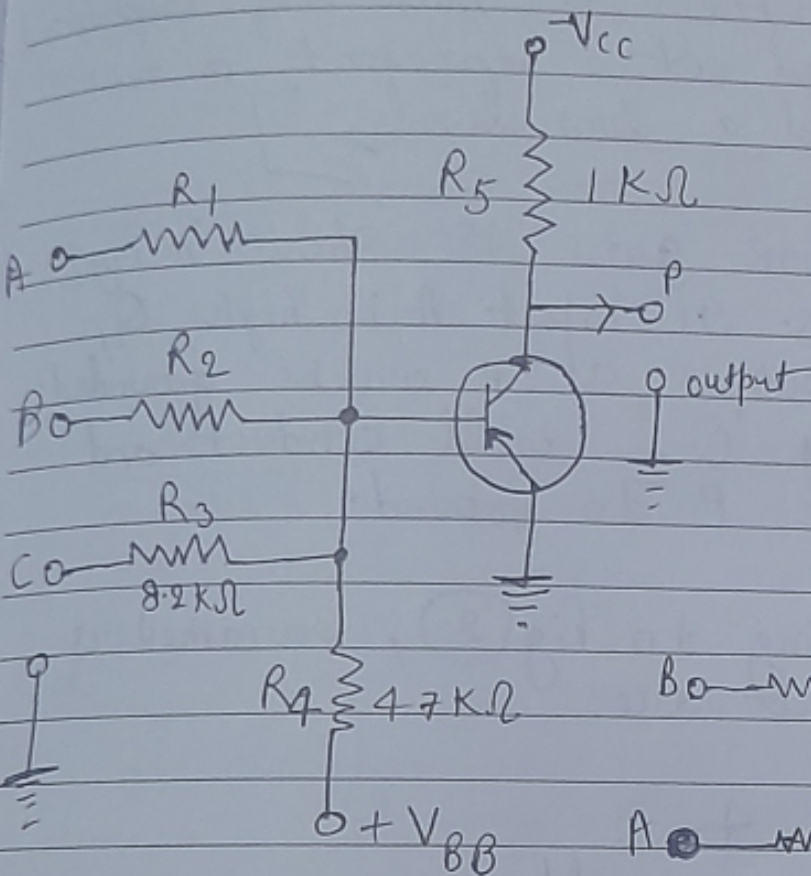 -VCC
R5 1KΩ
R1
A
P
R2
B
output
R3
C
8.2KΩ
R4 47KΩ
B
+VBB
A